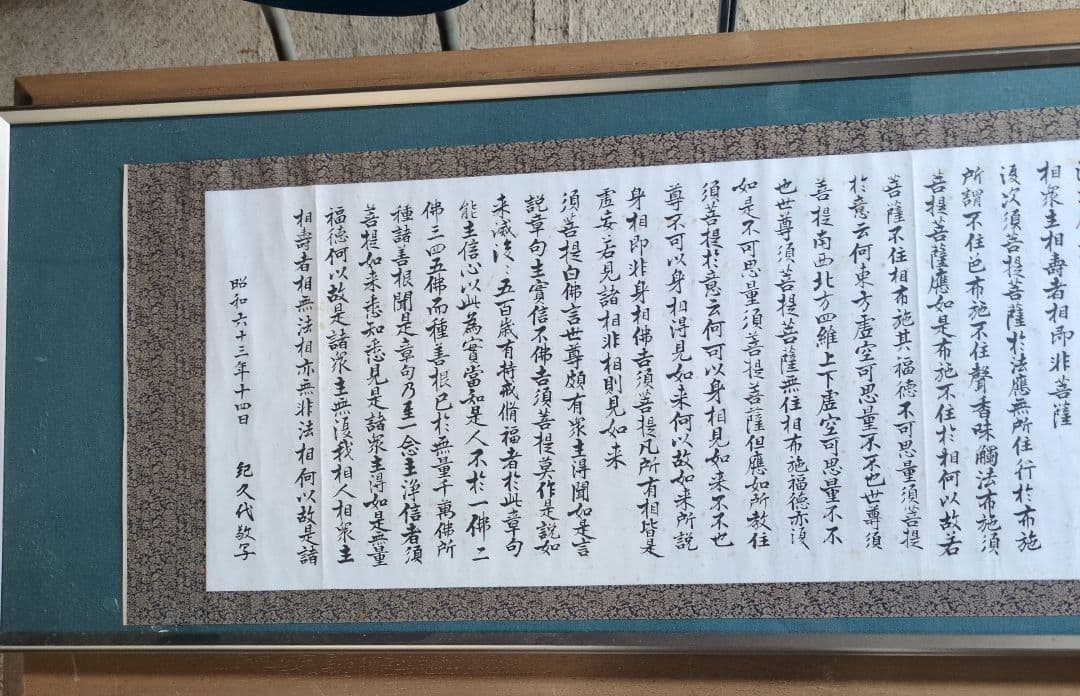 相衆生相壽者相即非菩薩
復次須菩提菩薩於法應無所住行於布施
所謂不住色布施不住聲香味觸法布施須
菩提菩薩應如是布施不住於相何以故若
菩薩不住相布施其福徳不可思量須菩提
於意云何東方虚空可思量不不也世尊須
菩提南西北方四維上下虚空可思量不不
也世尊須菩提菩薩無住相布施福徳亦復
如是不可思量須菩提菩薩但應如所教住
須菩提於意云何可以身相見如来不不也
尊不可以身相得見如来何以故如来所説
身相即非身相佛告須菩提凡所有相皆是
虚妄若見諸相非相則見如来
須菩提白佛言世尊頗有衆生得聞如是言
説章句生實信不佛告須菩提莫作是説如
来滅後〻五百歳有持戒脩福者於此章句
能生信心以此為實當知是人不於一佛二
佛三四五佛而種善根已於無量千萬佛所
種諸善根聞是章句乃至一念生浄信者須
菩提如来悉知悉見是諸衆生得如是無量
福徳何以故是諸衆生無復我相人相衆生
相壽者相無法相亦無非法相何以故是諸
昭和六十三年十四日 紀久代敬写